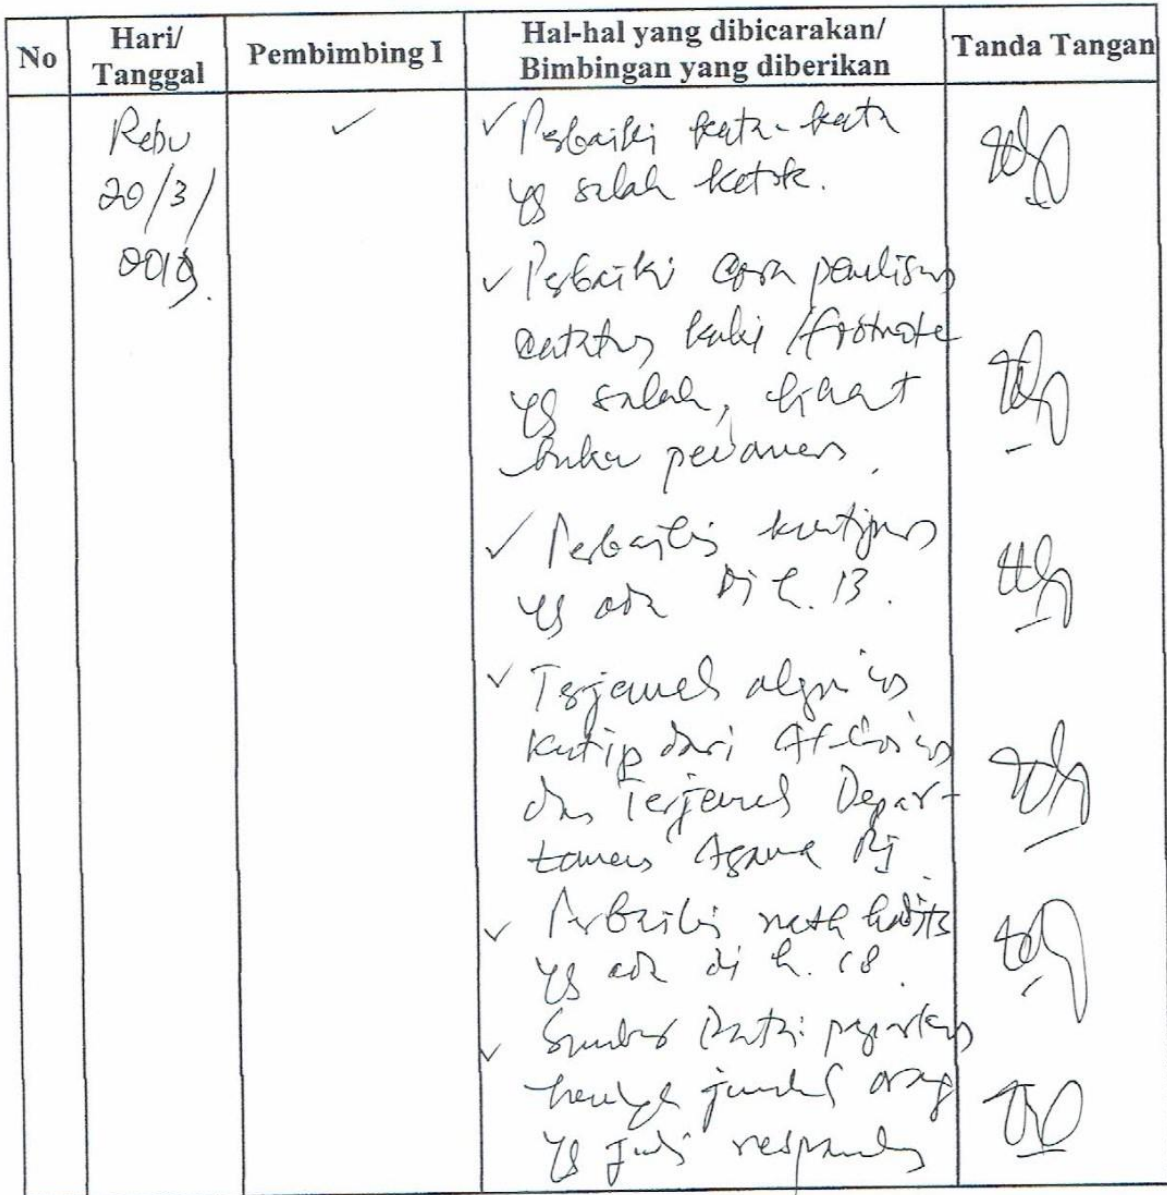 No
Hari/
Tanggal
Pembimbing I
Hal-hal yang dibicarakan/
Bimbingan yang diberikan
Tanda Tangan
Rebu
20/3/
2019.
✓
✓ Perbaiki kata-kata
yg salah ketik.
✓ Perbaiki cara penulisan
catatan kaki /footnote
yg salah, lihat
buku pedoman.
✓ Perbaiki kutipan
yg ada di h. 13.
✓ Terjemah alqur'an
kutip dari
dan Terjemah Depar-
temen Agama RI
✓ Perbaiki hadits
yg ada di h. 18.
✓ Sumber Data: paparkan
jumlah orang
yg jadi responden